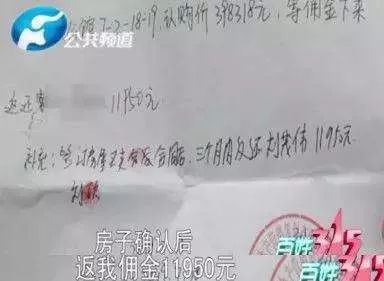 公共频道
7-2-18-19.认购价398318元,等佣金下来
返还
11950元
补充:签订房屋买卖合同后,三个月内返还刘茂伟11950元
房子确认后
返我佣金11950元
百姓315
百姓315